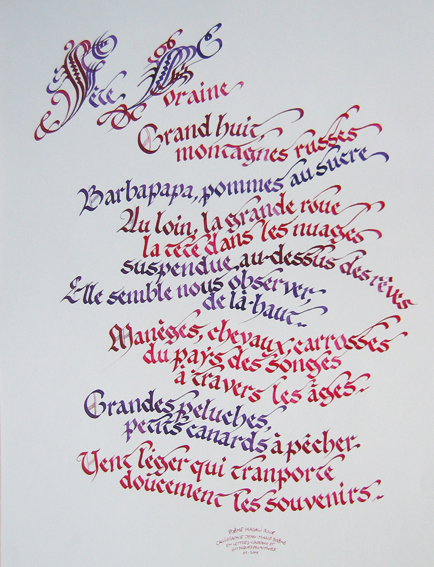 Fête
Foraine
Grand huit,
montagnes russes
Barbapapa, pommes au sucre
Au loin, la grande roue
la tête dans les nuages
suspendue, au-dessus des rêves
Elle semble nous observer,
de là-haut..
Manèges, chevaux, carrosses
du pays des songes
à travers les âges..
Grandes peluches,
petits canards à pêcher.
Vent léger qui tranporte
doucement les souvenirs..